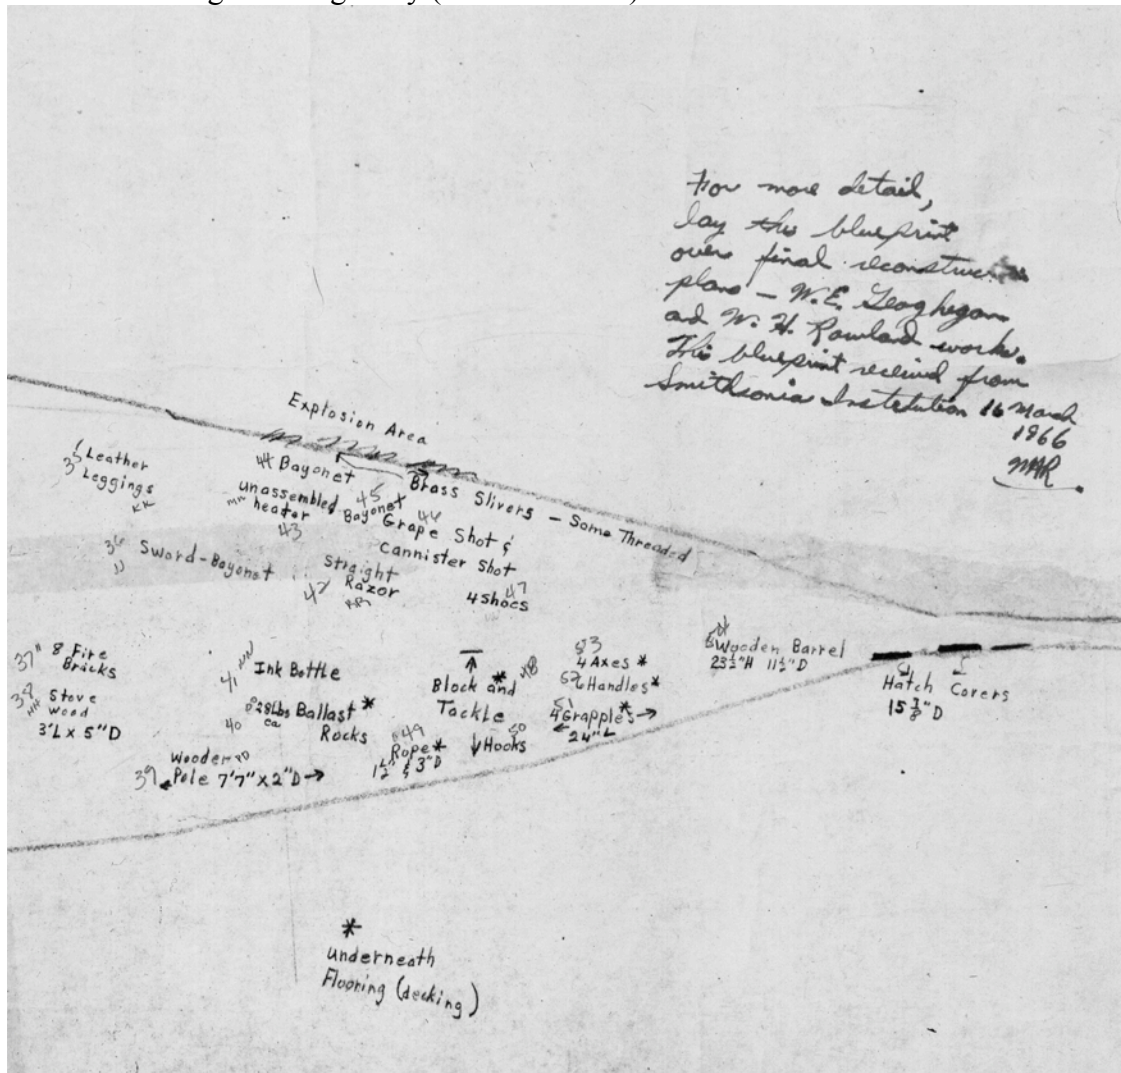 For more detail,
lay this blueprint
over final
plans – W.E. Geoghegan
and W. H. Rowland works.
This blueprint received from
Smithsonia Instetution 16 March
1966
Explosion Area
35 Leather
Leggings
KK
44 Bayonet
Brass Slivers – Some Threaded
unassembled
heater
43
45
Bayonet
Grape Shot &
Cannister Shot
36 Sword-Bayonet
JJ
Straight
Razor
42
RR
47
4 Shoes
37 8 Fire
Bricks
38 Stove
Wood
HH
3'L x 5"D
41 Ink Bottle
28lbs Ballast *
ea Rocks
40
Block and *
Tackle
49
Rope *
50
Hooks
53
4 Axes *
Handles *
51
Grapples *
24" L
Wooden Barrel
23½"H 11½"D
Hatch Covers
39 Pole 7'7" x 2"D
*
underneath
Flooring (decking)